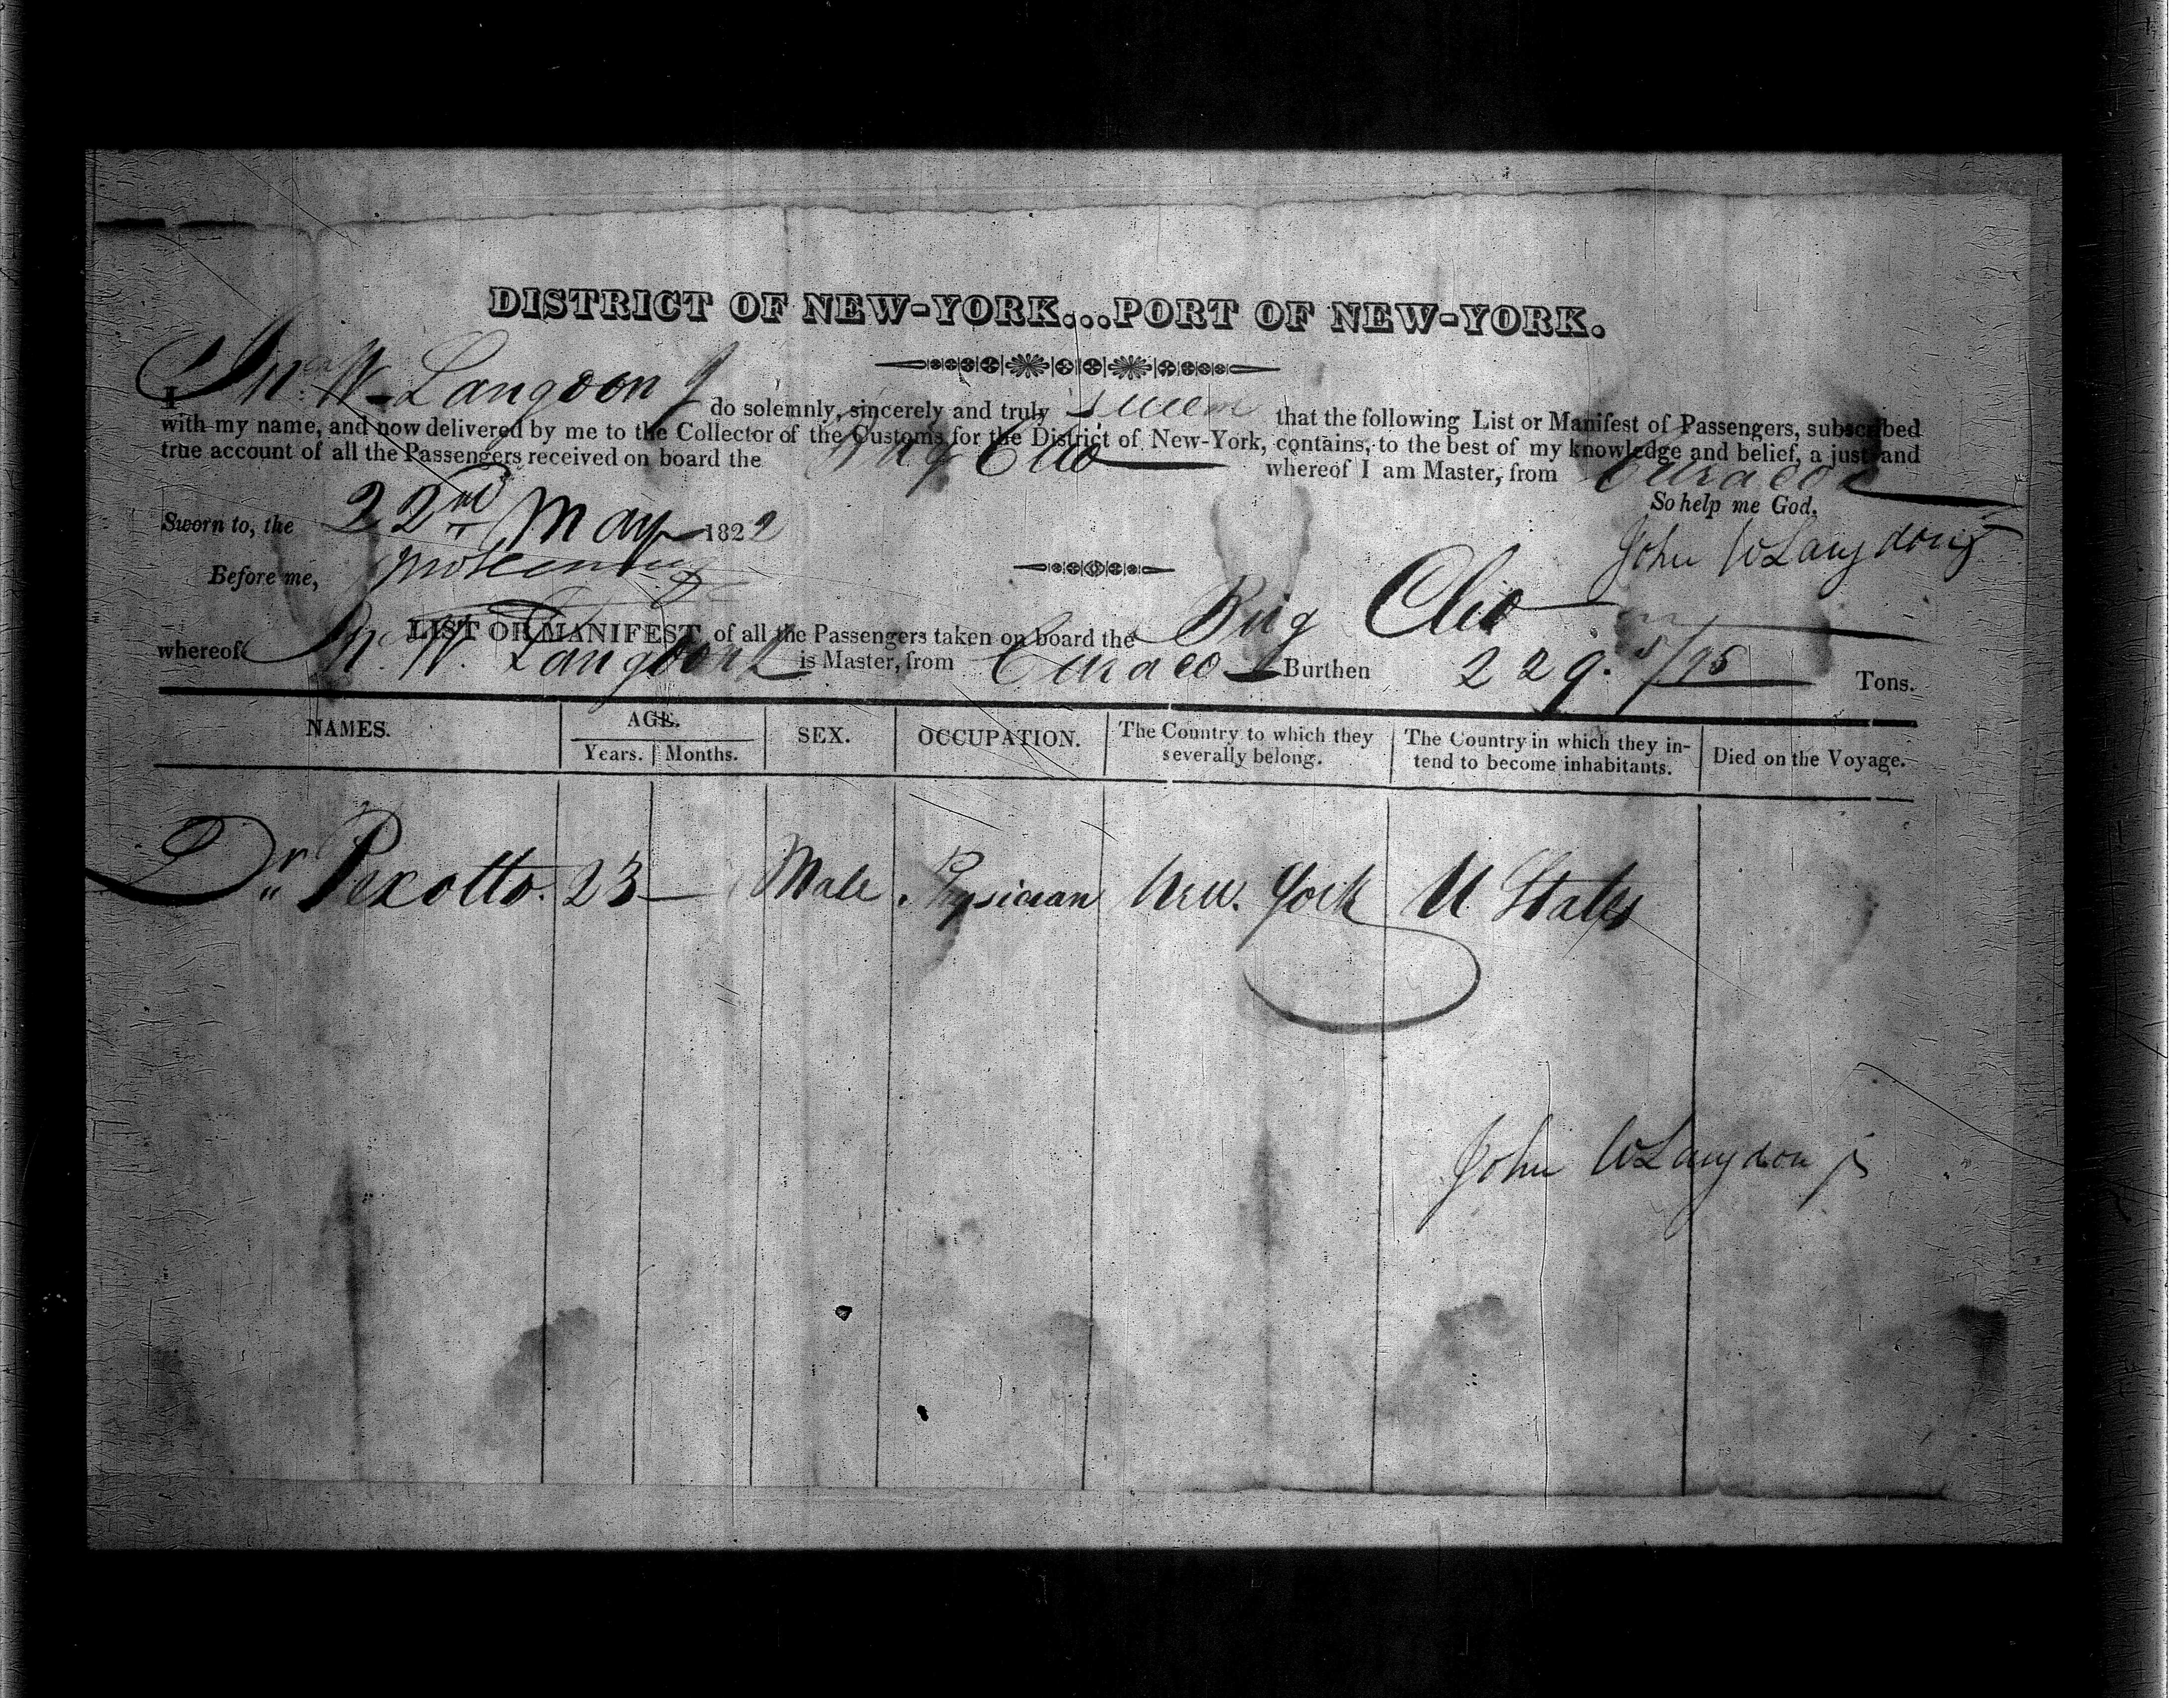 DISTRICT OF NEW-YORK...PORT OF NEW-YORK.
I Jno. W. Langdon J do solemnly, sincerely and truly swear that the following List or Manifest of Passengers, subscribed
with my name, and now delivered by me to the Collector of the Customs for the District of New-York, contains, to the best of my knowledge and belief, a just and
true account of all the Passengers received on board the Brig Clio whereof I am Master, from Curacoa
So help me God.
Sworn to, the 22nd May 1822
John W Langdon Jr
Before me,
LIST OR MANIFEST of all the Passengers taken on board the Brig Clio
whereof Jno. W. Langdon Jr is Master, from Curaco Burthen 229. 5/95 Tons.
NAMES. AGE. SEX. OCCUPATION. The Country to which they severally belong. The Country in which they in-tend to become inhabitants. Died on the Voyage.
Years. Months.
Dr Pexotto. 23 — Male Physician New. York U States
John W Langdon Jr